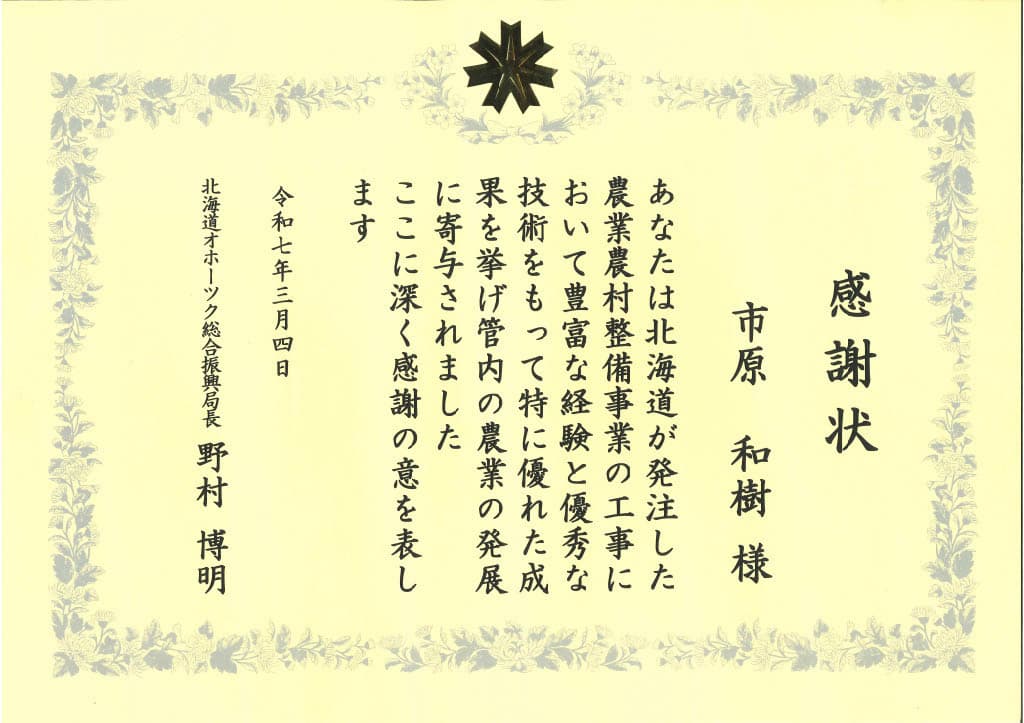 感謝状
市原 和樹 様
あなたは北海道が発注した
農業農村整備事業の工事に
おいて豊富な経験と優秀な
技術をもって特に優れた成
果を挙げ管内の農業の発展
に寄与されました
ここに深く感謝の意を表し
ます
令和七年三月四日
北海道オホーツク総合振興局長 野村 博明